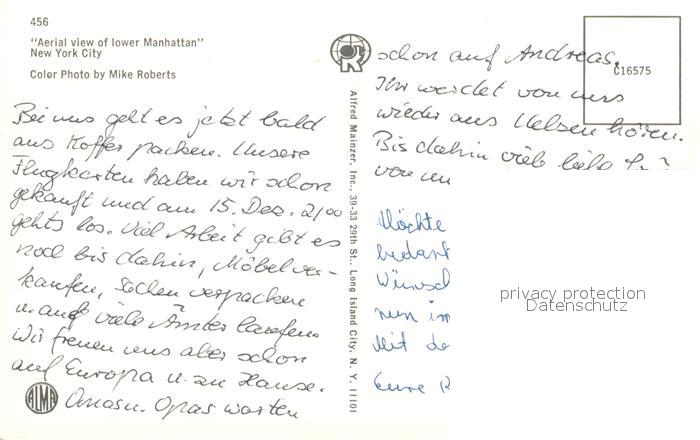 456
"Aerial view of lower Manhattan"
New York City
Color Photo by Mike Roberts
Bei uns geht es jetzt bald
ans Koffer packen. Unsere
Flugkarten haben wir schon
gekauft und am 15. Dez. 21.00
gehts los. Viel Arbeit gibt es
noch bis dahin, Möbel ver-
kaufen, Sachen verpacken
u. auf viele Ämter laufen.
Wir freuen uns aber schon
auf Europa u. zu Hause.
ALMA
Omas u. Opas warten
Alfred Mainzer, Inc., 39-33 29th St., Long Island City, N. Y. 11101
R
C16575
schon auf Andreas.
Ihr werdet von uns
wieder aus Uelzen hören.
Bis dahin viele liebe
von un
Möchte
bedank
Wünsch
nun im
Mit de
Eure R
privacy protection
Datenschutz